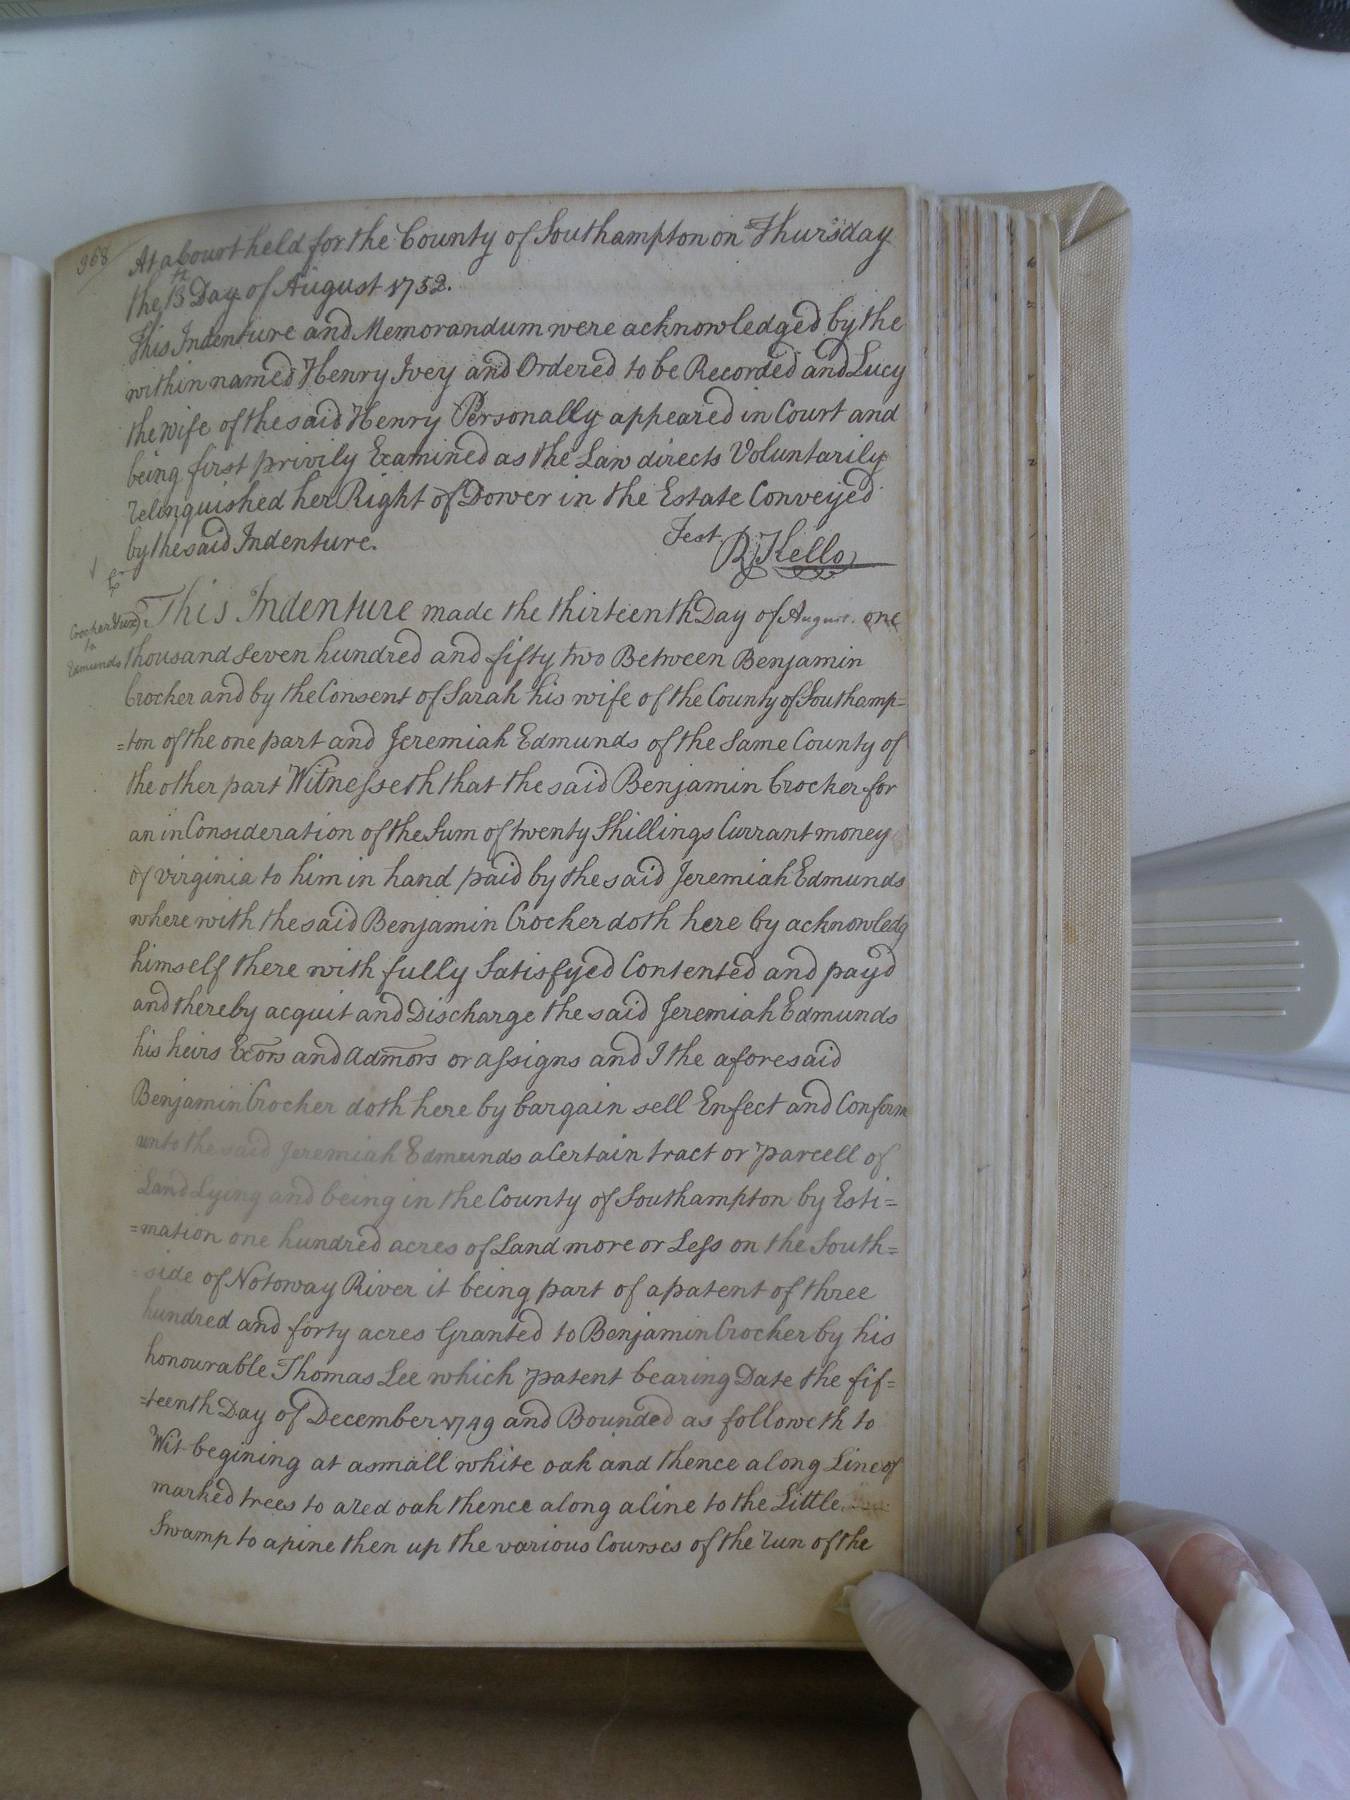 368
At a Court held for the County of Southampton on Thursday
the 13th Day of August 1752.
This Indenture and Memorandum were acknowledged by the
within named Henry Ivey and Ordered to be Recorded and Lucy
the Wife of the said Henry Personally appeared in Court and
being first privily Examined as the Law directs Voluntarily
relinquished her Right of Dower in the Estate Conveyed
by the said Indenture.
Test. R Kello
Crocker & ux
to
Edmunds
This Indenture made the thirteenth Day of August one
thousand Seven hundred and fifty two Between Benjamin
Crocker and by the Consent of Sarah his wife of the County of Southamp=
=ton of the one part and Jeremiah Edmunds of the Same County of
the other part Witnesseth that the said Benjamin Crocker for
an in Consideration of the Sum of twenty Shillings Currant money
of virginia to him in hand paid by the said Jeremiah Edmunds
where with the said Benjamin Crocker doth here by acknowledg
himself there with fully Satisfyed Contented and pay'd
and thereby acquit and Discharge the said Jeremiah Edmunds
his heirs Exors and Admors or assigns and I the aforesaid
Benjamin Crocker doth here by bargain sell Enfect and Conferm
unto the said Jeremiah Edmunds a Certain tract or parcell of
Land Lying and being in the County of Southampton by Esti=
=mation one hundred acres of Land more or Less on the South=
=side of Notoway River it being part of a patent of three
hundred and forty acres Granted to Benjamin Crocker by his
honourable Thomas Lee which patent bearing Date the fif=
=teenth Day of December 1749 and Bounded as followeth to
Wit begining at a small white oak and thence along Line of
marked trees to a red oak thence along a line to the Little
Swamp to a pine then up the various Courses of the run of the